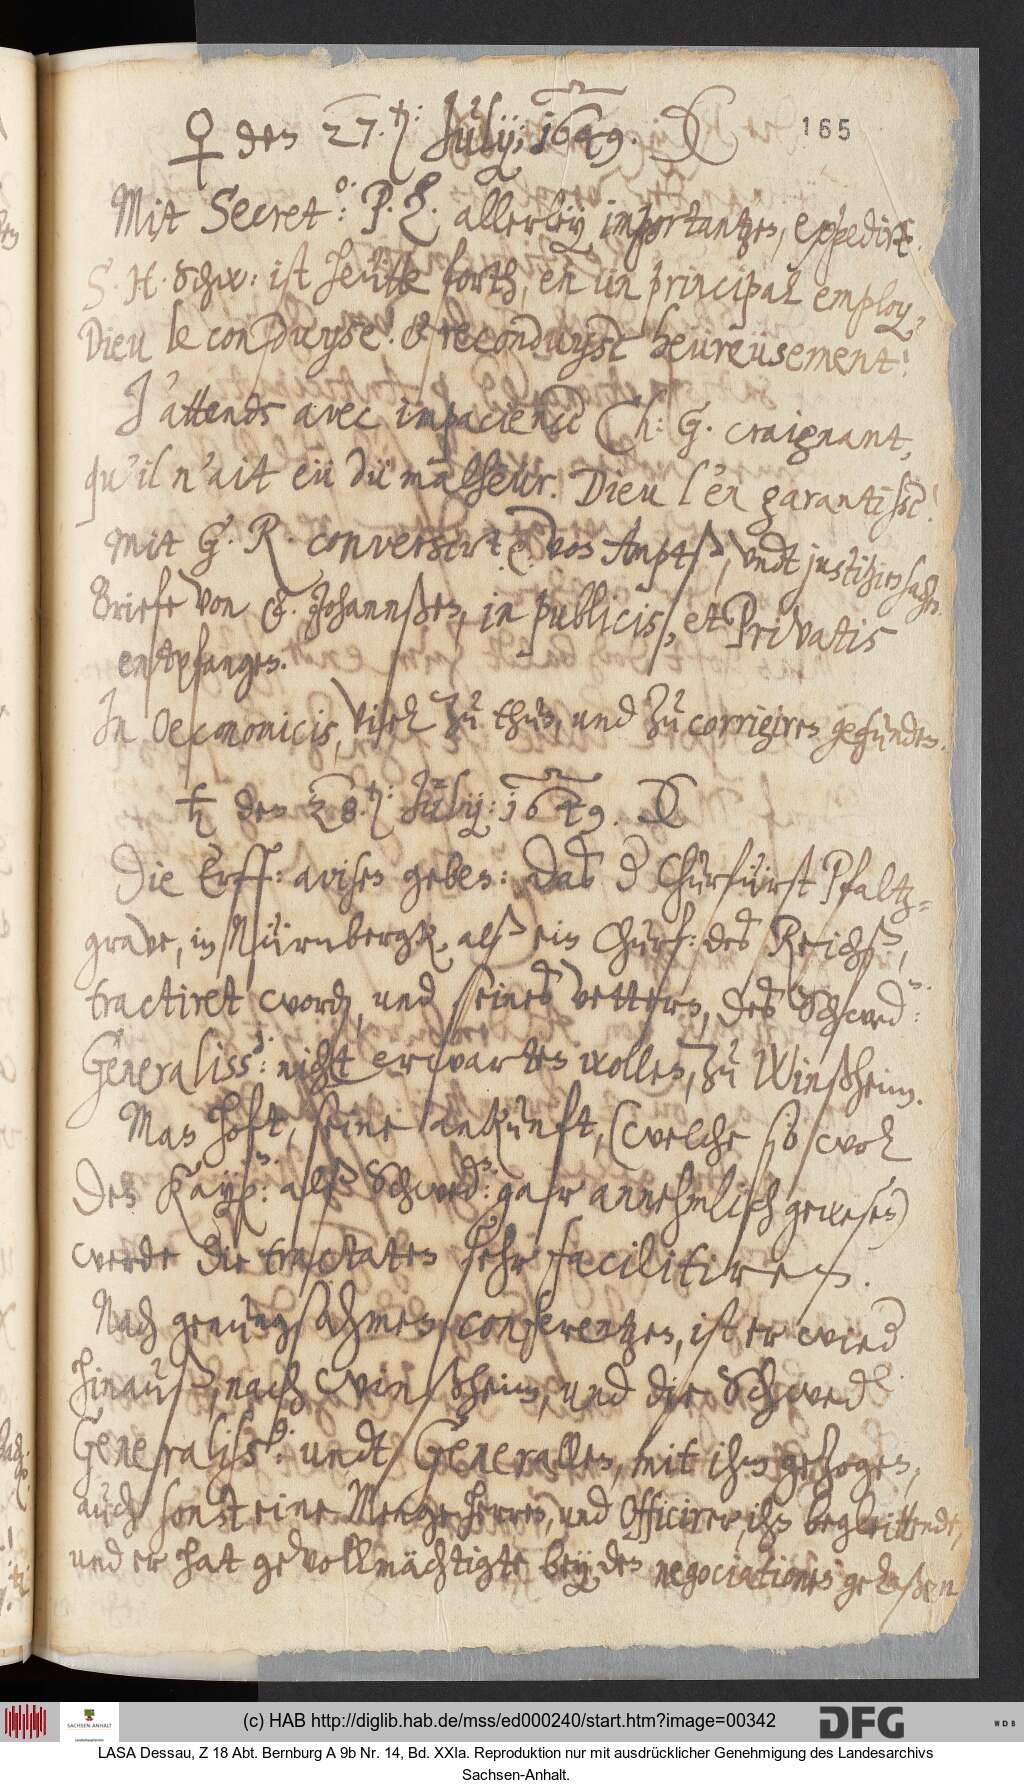 ♀ den 27. July: 1649.
165
Mit Secret: P. L. allerley importantzen, expedirt.
S. H. Schw: ist heütte forth, en un principal employ,
Dieu le conduyse! & reconduyse heüreüsement!
J'attends avec impacience Ch: G. craignant,
qu'il n'ait eü du malheur. Dieu l'en garantisse!
Mit G. R. conversirt von Ampts, undt justitzien sachen
Briefe von Johannßen, in publicis, et Privatis
entpfangen.
In Oeconomicis, viel zu thun, und zu corrigiren gefunden.
♄ den 28. July: 1649.
Die Erff: avisen geben: das der Churfürst Pfaltz-
grave, in Nürnbergk, alß ein Churf: des Reichß,
tractiret word, und seines vettern, des Schwed:
Generaliss: nicht erwarten wollen, zu Winßheim.
Man hoft, seine ankunft, (welche so wol
den Kays: alß Schwed: gar annehmlich gewesen)
werde die tractaten sehr facilitiren.
Nach genungsahmen conferentzen, ist er wied
hinauß, nach Winßheim, und die Schwed
Generaliss: undt Generallen, mit ihm gezogen,
auch sonst eine Menge Herren, und Officirer, ihn begleittende,
und er hat gevollmächtigte bey den negociationes gelaßen
(c) HAB http://diglib.hab.de/mss/ed000240/start.htm?image=00342
SACHSEN-ANHALT
DFG
WDB
LASA Dessau, Z 18 Abt. Bernburg A 9b Nr. 14, Bd. XXIa. Reproduktion nur mit ausdrücklicher Genehmigung des Landesarchivs
Sachsen-Anhalt.